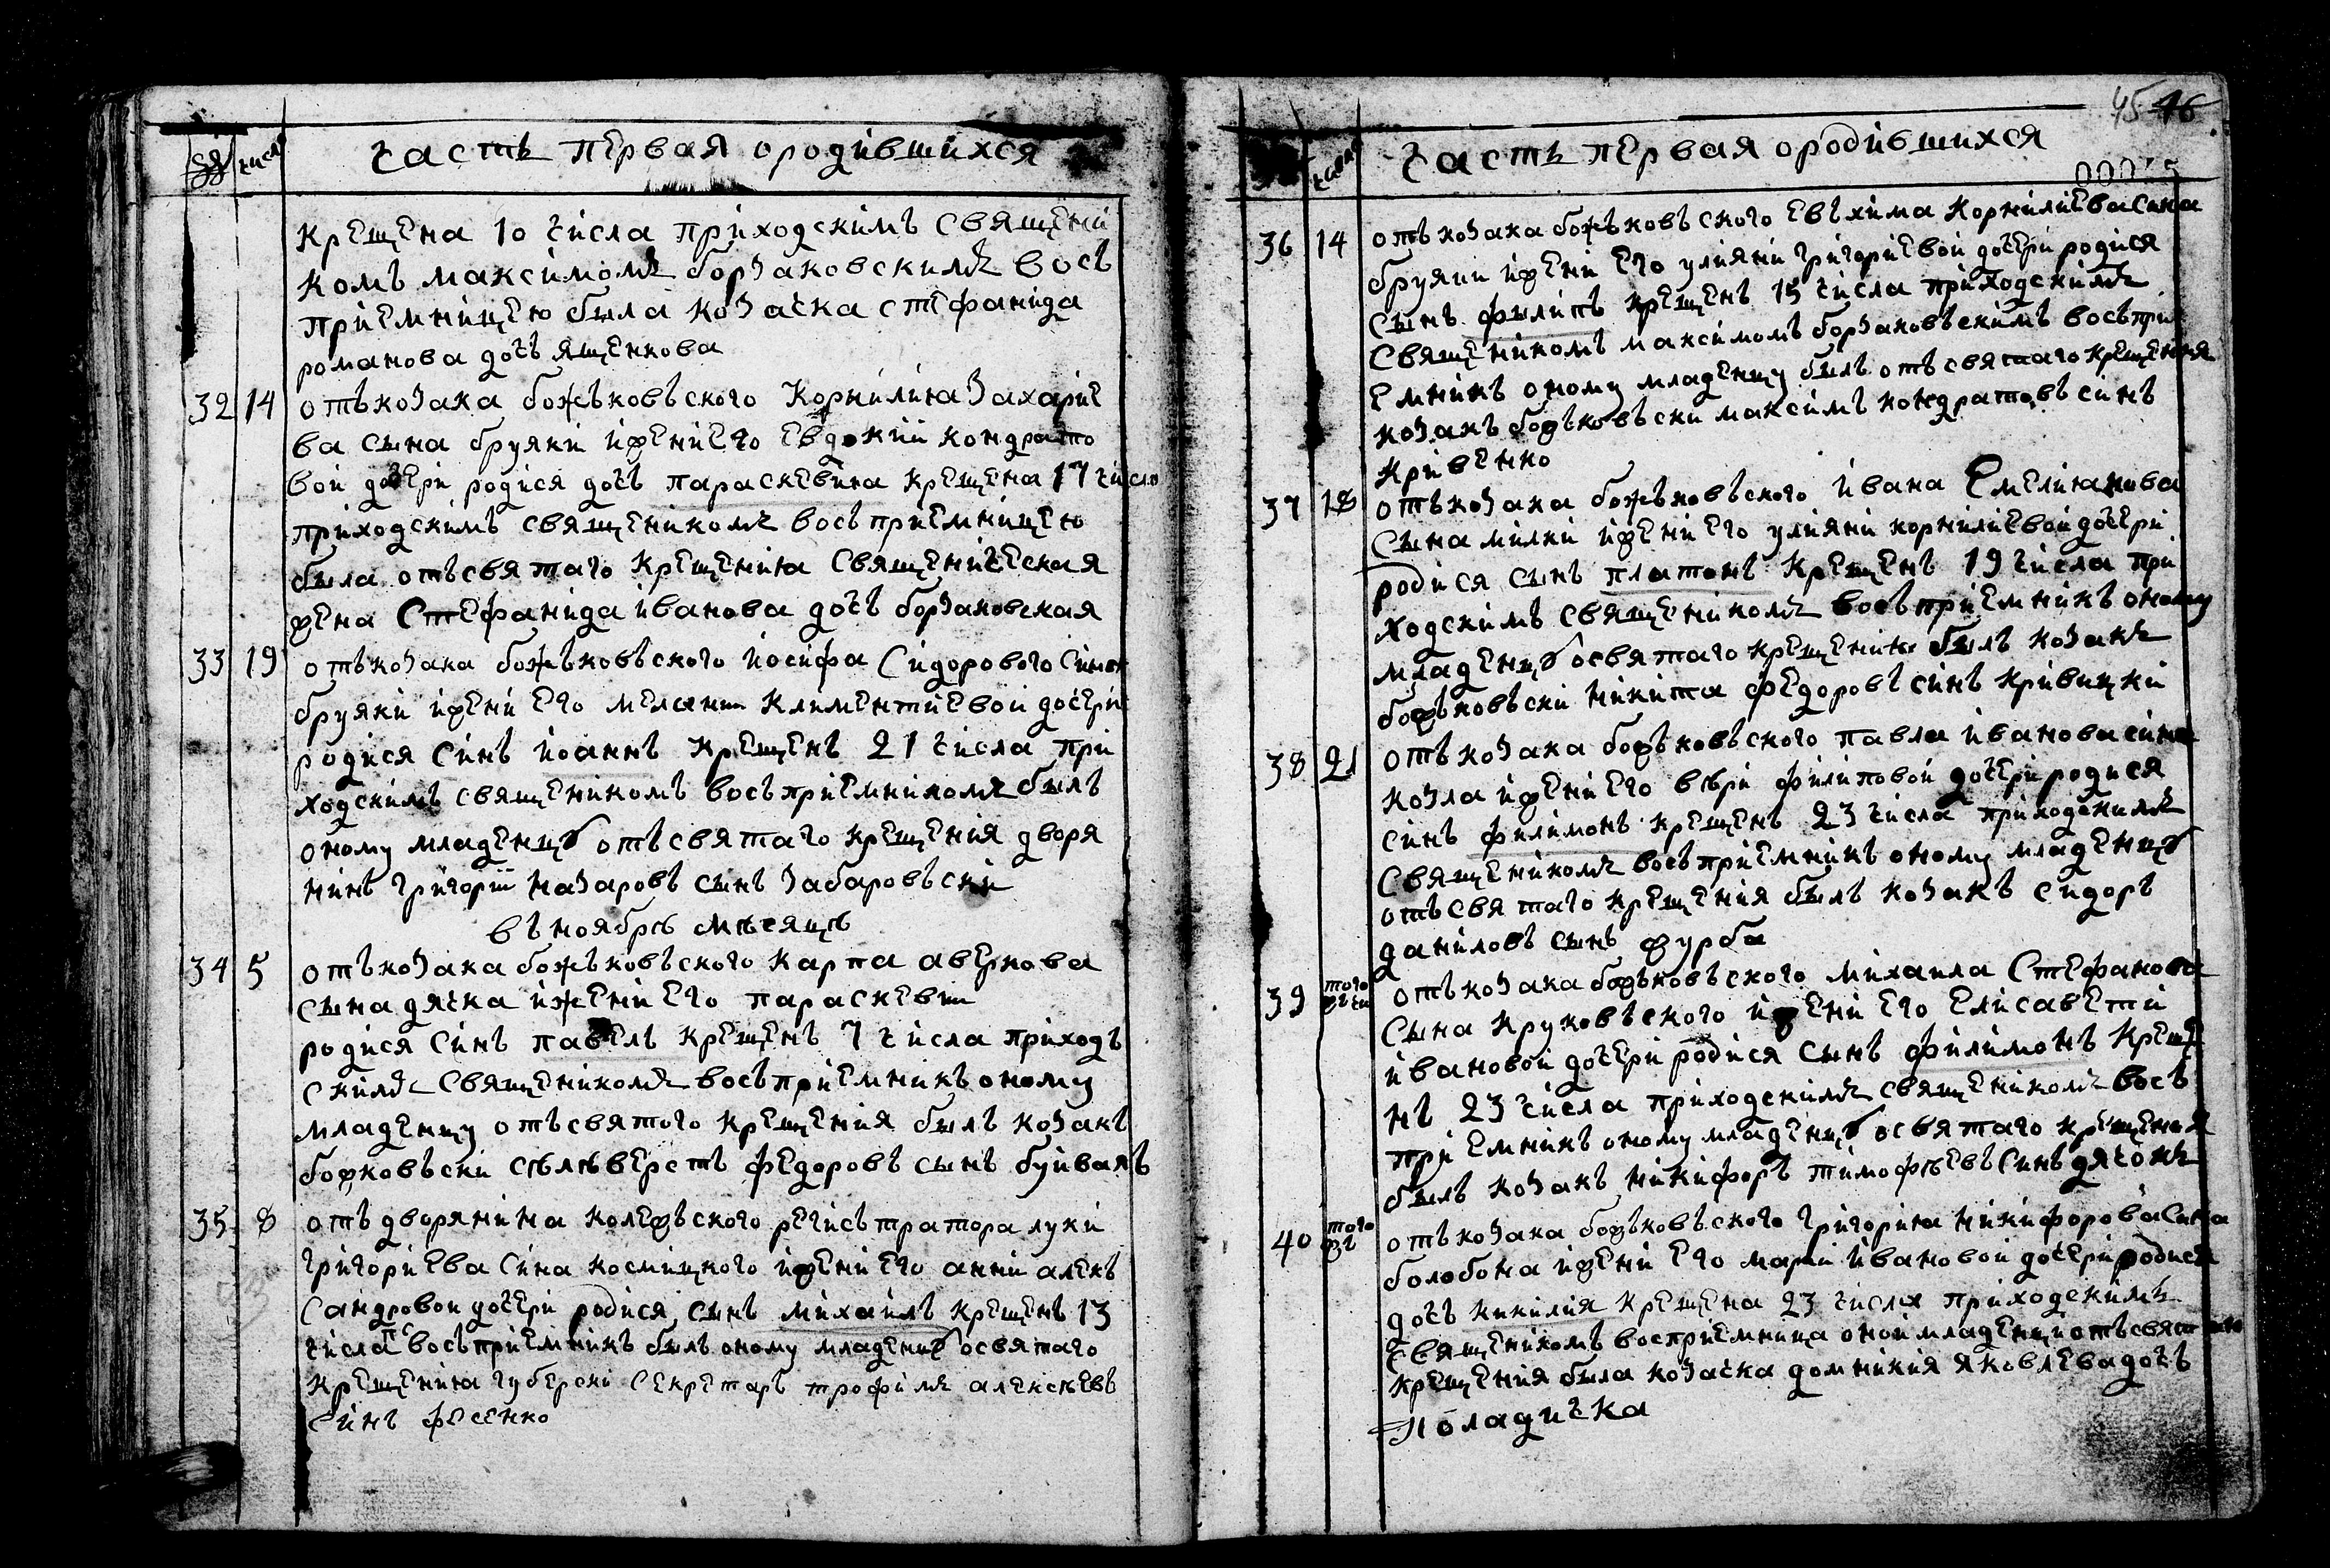 числ
часть первая ородившихся
крещена 10 числа приходскимъ священи
комъ максимомъ борзаковскимъ восъ
приемницею была козачка стефанида
романова дочъ ященкова
32 14 отъкозака божъковъского Корнилиа Захарие
ва сына бруяки ижениего евдокии кондрато
вой дочери родися дочъ параскевиа крещена 17 число
приходскимъ священикомъ восъприемницею
была отъсвятаго крещениа священическая
жена Стефанида иванова дочъ борзаковская
33 19 отъкозака божъковъского иосифа Сидорового Сина
бруяки ижени его мелании Климентиевой дочери
родися Синъ иоаннъ крещенъ 21 числа при
ходскимъ священикомъ восъприемникомъ былъ
оному младенцу отъсвятаго крещения дворя
нинъ григорий назаровъ сынъ забаровъски
въноябрѣ мѣсяцѣ
34 5 отъкозака божъковъского карпа аверкова
сына дячка ижени его параскевии
родися Синъ павелъ крещенъ 7 числа приходъ
скимъ священикомъ восъприемникъ оному
младенцу отъсвятого крещения былъ козакъ
божковъски сѣлѣверстъ федоровъ сынъ буйвалъ
35 8 отъдворянина колежъского регисътратора луки
григориева Сина космицкого ижениего анни алекъ
Сандровой дочери родися сынъ михаилъ крещенъ 13
числа восъприемникъ былъ оному младенцу освятаго
крещениа губерски секретаръ трофимъ алексѣевъ
Синъ фесенко
45 46
числ
часть первая ородившихся
36 14 отъкозака божъковъского евъхима Корнилиева Сина
бруяки ижени его улияни григориевой дочери родися
Сынъ филипъ крещенъ 15 числа приходскимъ
священикомъ максимомъ борзаковъскимъ восъпри
емникъ оному младенцу былъ отъ святаго крещения
козакъ божъковъски максимъ кондратовъ синъ
кривенко
37 18 отъкозака божъковъского ивана Емелианова
Сына милки ижени его улияни корнилиевой дочери
родися сынъ платонъ крещенъ 19 числа при
ходскимъ священикомъ восъприемникъ оному
младенцу освятаго крещениа былъ козакъ
божъковъски никита федоровъ синъ кривицки
38 21 отъкозака божъковъского павла иванова сина
козла ижениего вѣри филиповой дочери родися
синъ филимонъ крещенъ 23 числа приходскимъ
Священикомъ восъприемникъ оному младенцу
отъсвятаго крещения былъ козакъ сидоръ
даниловъ сынъ журба
39 того жъ чи отъкозака божъковъского михаила Стефанова
Сына Круковъского ижени его Елисавети
ивановой дочери родися сынъ филимонъ креще
нъ 23 числа приходскимъ священикомъ восъ
приемникъ оному младенцу освятаго крещения
былъ козакъ никифоръ тимофѣевъ Синъ дячокъ
40 того жъ отъкозака божъковъского григориа никифорова Сина
болобона ижени его марии ивановой дочери родися
дочъ кикилия крещена 23 числа приходскимъ
священикомъ восприемница оной младенци отъсвятаго
крещения была козачка домникия яковлева дочъ
поладичка